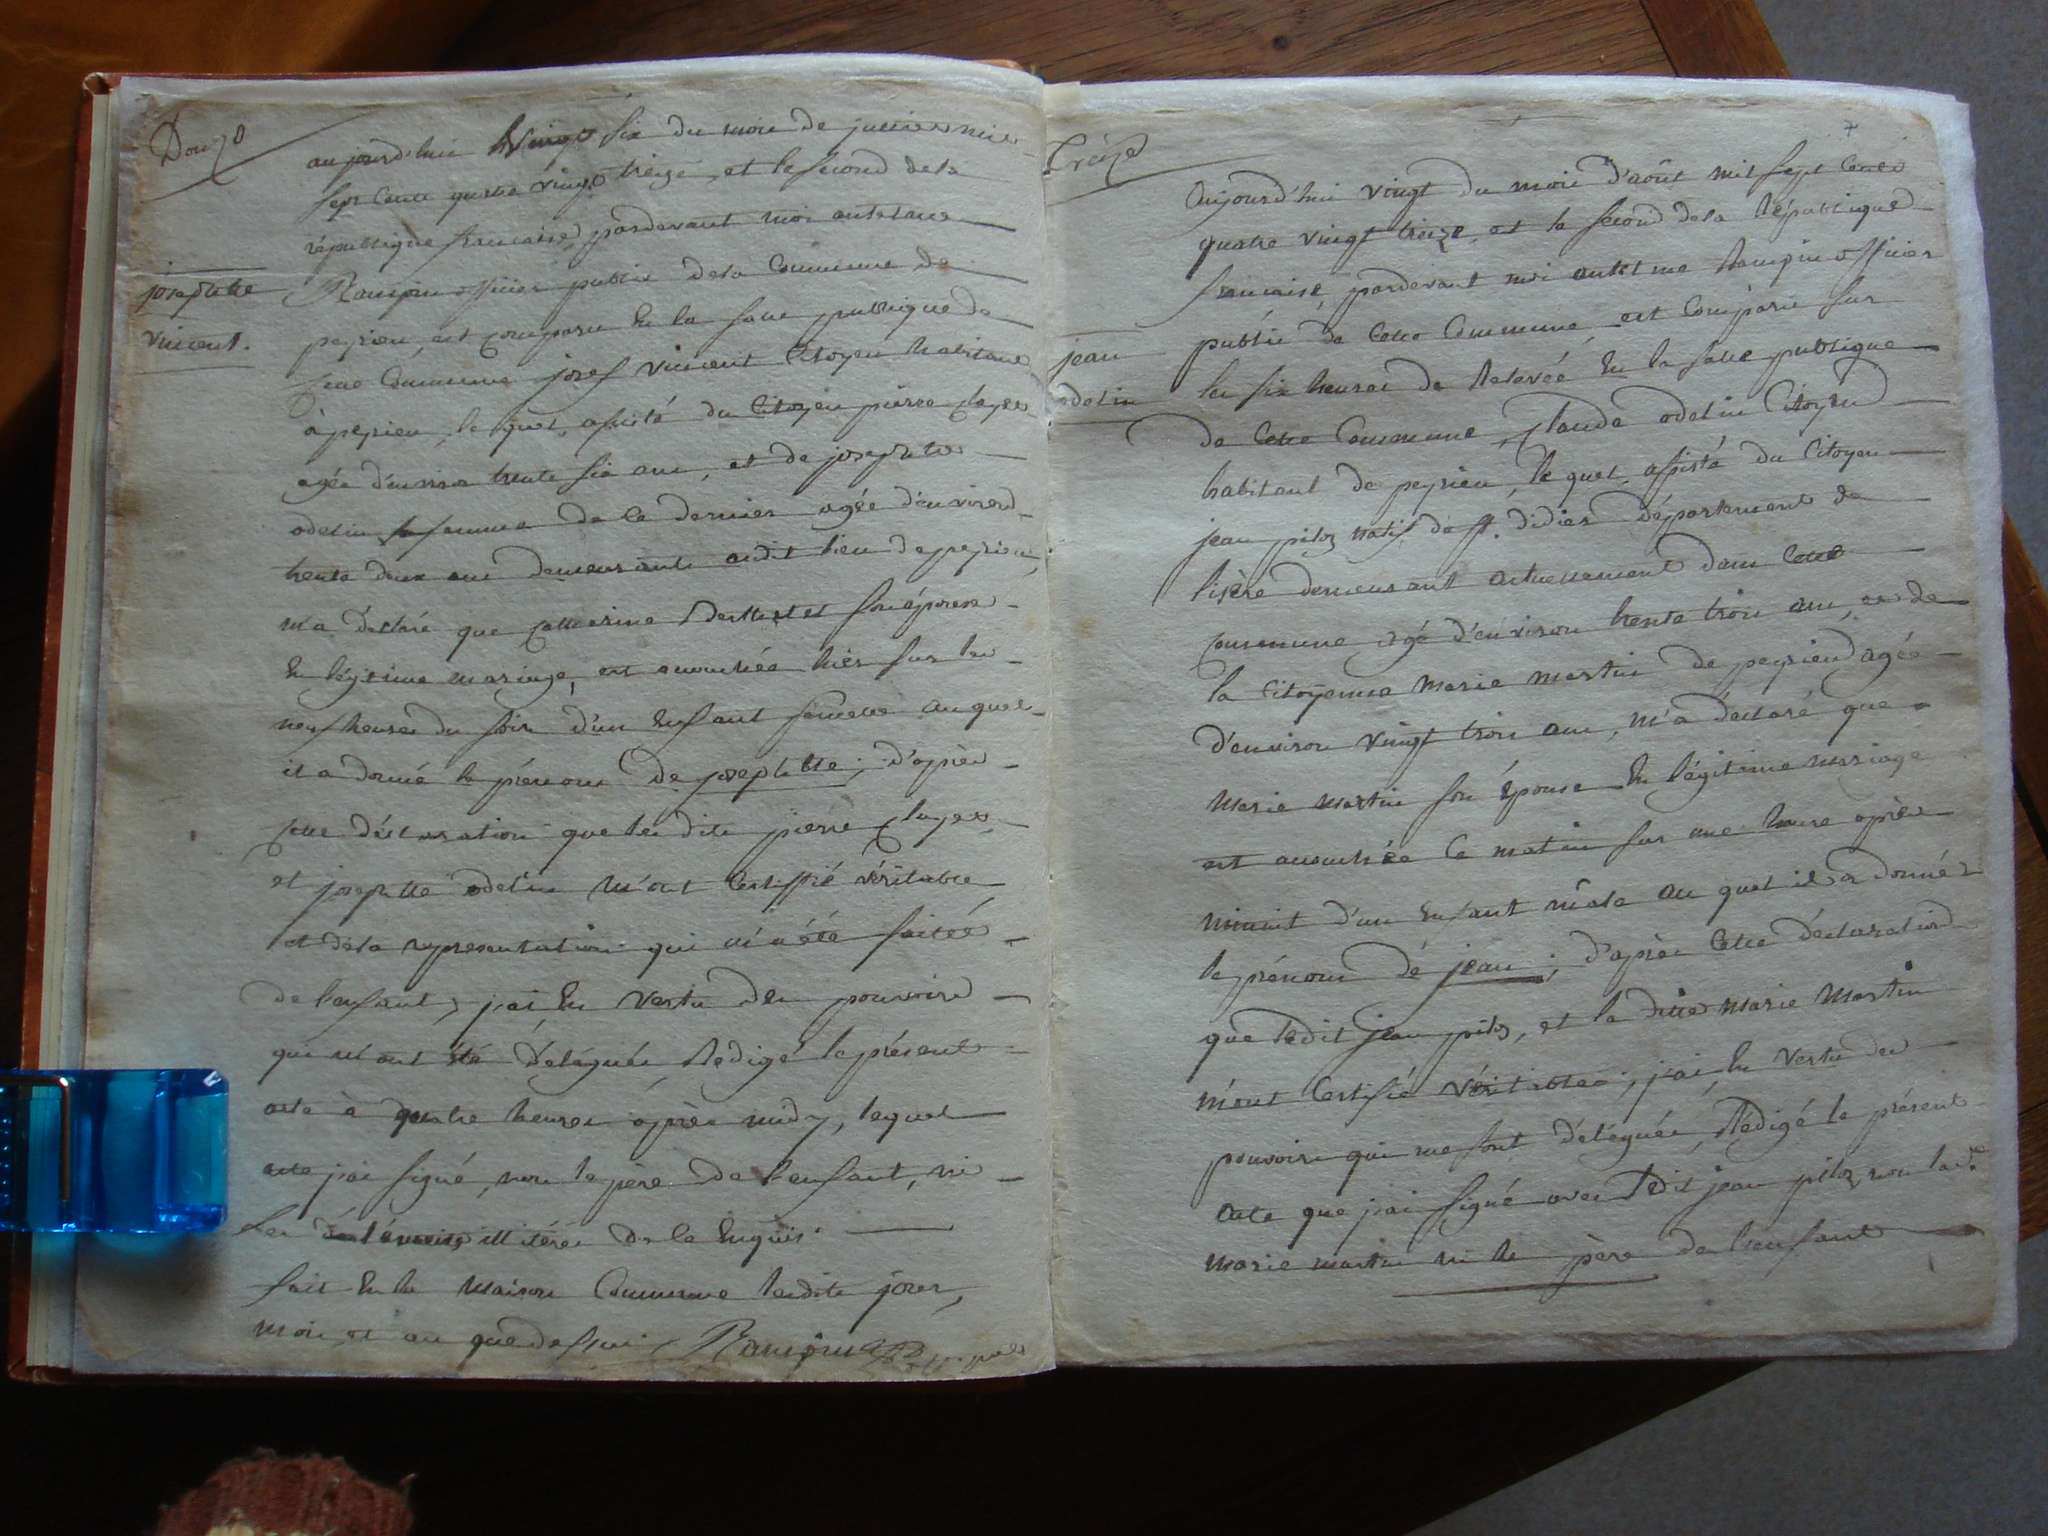 Douze
aujourd'hui vingt six du mois de juillet mil
sept cent quatre vingt treize, et le second de la
république francaise, pardevant moi antelme
josephette
Rampin officier public de la Commune de
vincent.
peyrieu, est comparu en la salle publique de
cette Commune josef vincent Citoyen habitant
à peyrieu, le quel, assisté du Citoyen pierre
agée d'environ trente six ans, et de josephette
odelin femme de ce dernier agée d'environ
trente deux ans demeurants audit lieu de peyrieu,
m'a déclaré que Catterine son épouse
en légitime mariage, est accouchée hier sur les
neuf heures du soir d'un enfant femelle auquel
il a donné le prénom de josephette; d'après
cette déclaration que les dits pierre
et josephette odelin m'ont certiffié véritable
et de la representation qui m'a été faitte
de l'enfant, j'ai en vertu des pouvoirs
qui m'ont été délégués, Rédigé le présent
acte à quatre heures après midy, lequel
acte j'ai signé, non le père de l'enfant, ni
les témoins illitérés de ce enquis.
fait en la maison Commune lesdits jour,
mois et an que dessus. Rampin
7
Treize
Aujourd'hui vingt du mois d'août mil sept cent
quatre vingt treize, et le second de la République
francaise, pardevant moi antelme Rampin officier
public de cette Commune est comparu sur
jean
les six heures de Relevée en la salle publique
odelin
de cette Commune, Claude odelin Citoyen
habitant de peyrieu, le quel, assisté du Citoyen
jean piloz natif de st. didier département de
l'isère demeurant actuellement dans cette
commune agé d'environ trente trois ans, et de
la Citoyenne Marie Martin de peyrieu agée
d'environ vingt trois ans, m'a déclaré que
Marie Martin son épouse en légitime mariage
est accouchée ce matin sur une heure après
minuit d'un enfant mâle au quel il a donné
le prénom de jean; d'après cette déclaration
que ledit jean piloz, et la ditte Marie Martin
m'ont certifié véritable; j'ai en vertu des
pouvoirs qui me sont délégués, Rédigé le présent
acte que j'ai signé avec ledit jean piloz, non la de
Marie martin ni le père de l'enfant